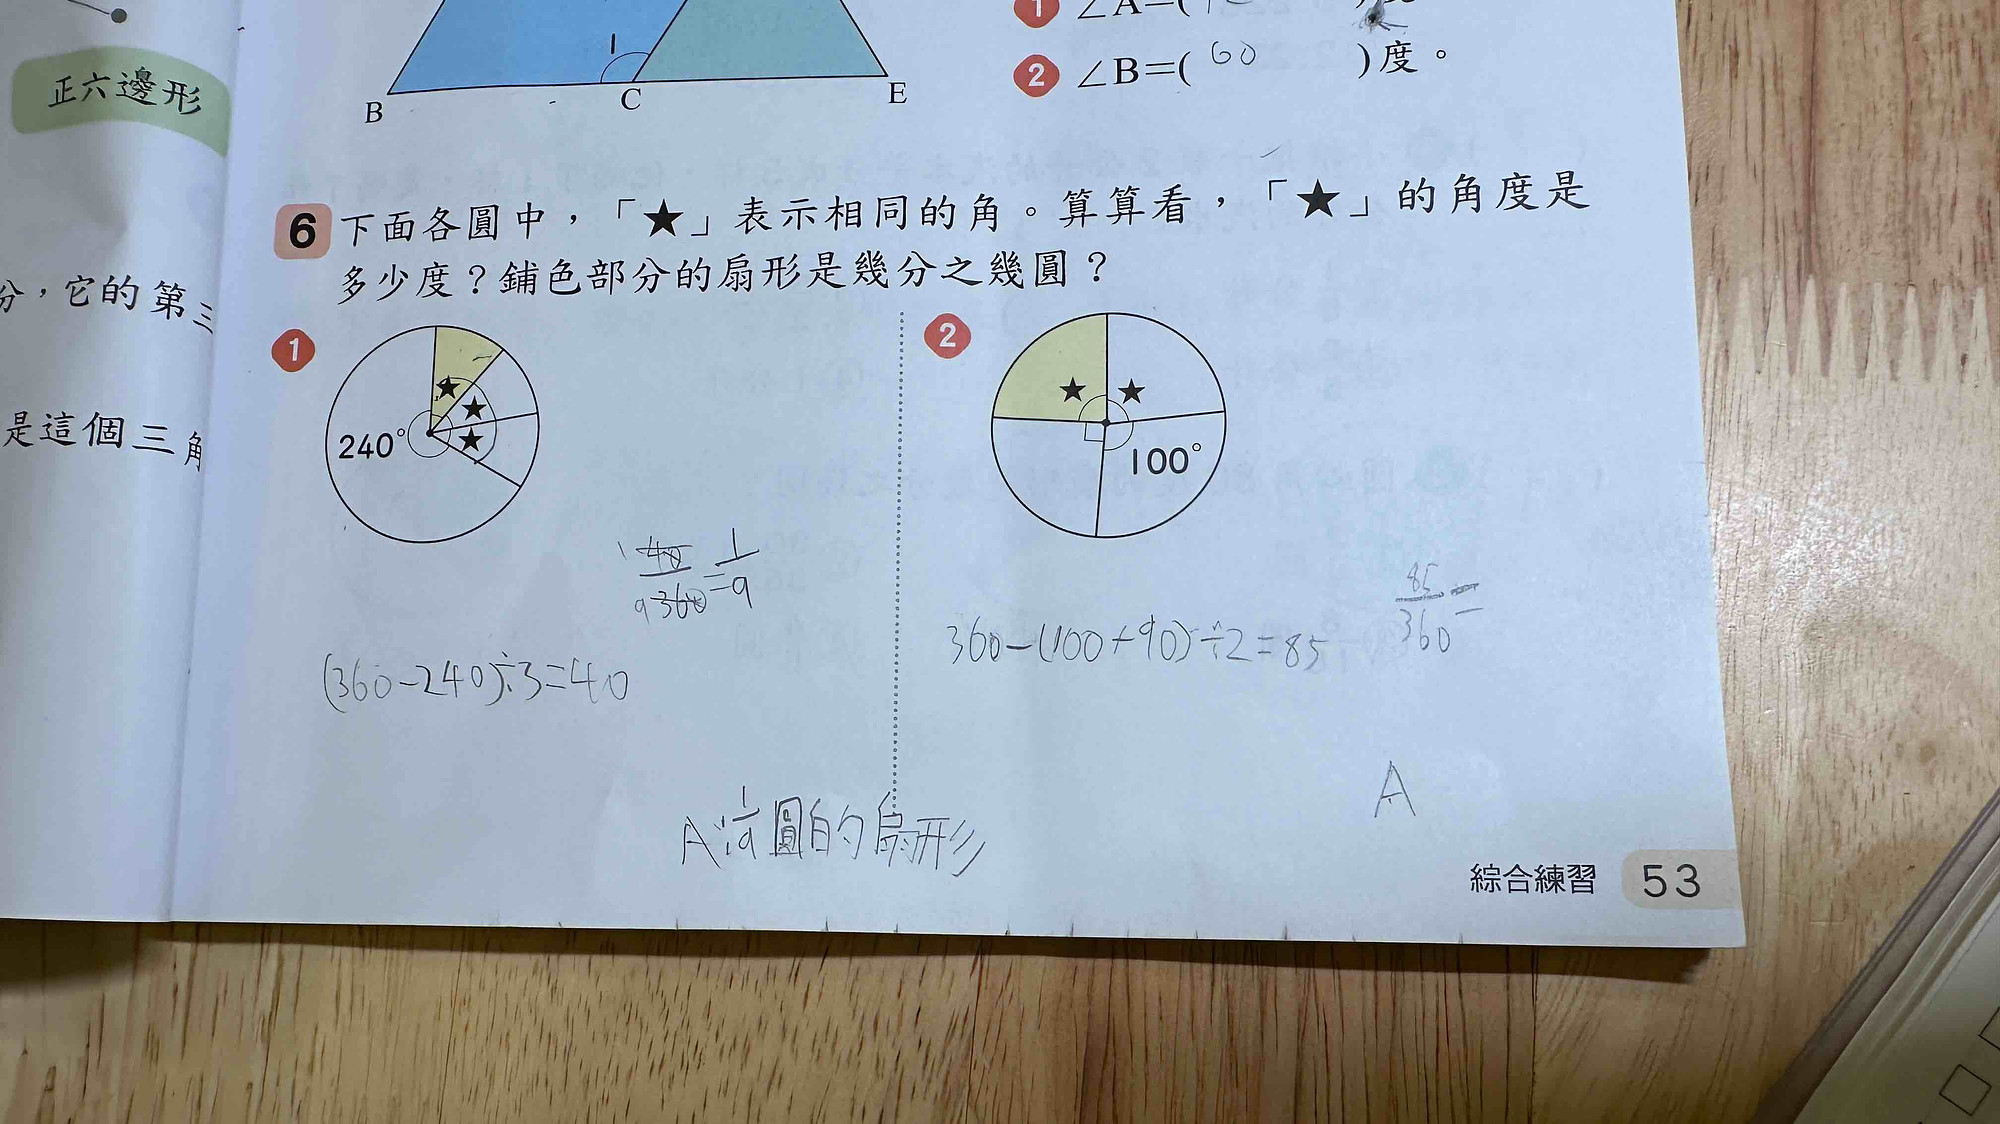 正六邊形
分，它的第三
是這個三角
1 ∠A=(
2 ∠B=( 60 )度。
1
B C E
6 下面各圓中，「★」表示相同的角。算算看，「★」的角度是
多少度？鋪色部分的扇形是幾分之幾圓？
1
240°
★ ★ ★
40/360=1/9
1 9
(360-240)÷3=40
A:1/9圓的扇形
2
★ ★
100°
360-(100+90)÷2=85
85/360=
A
綜合練習 53